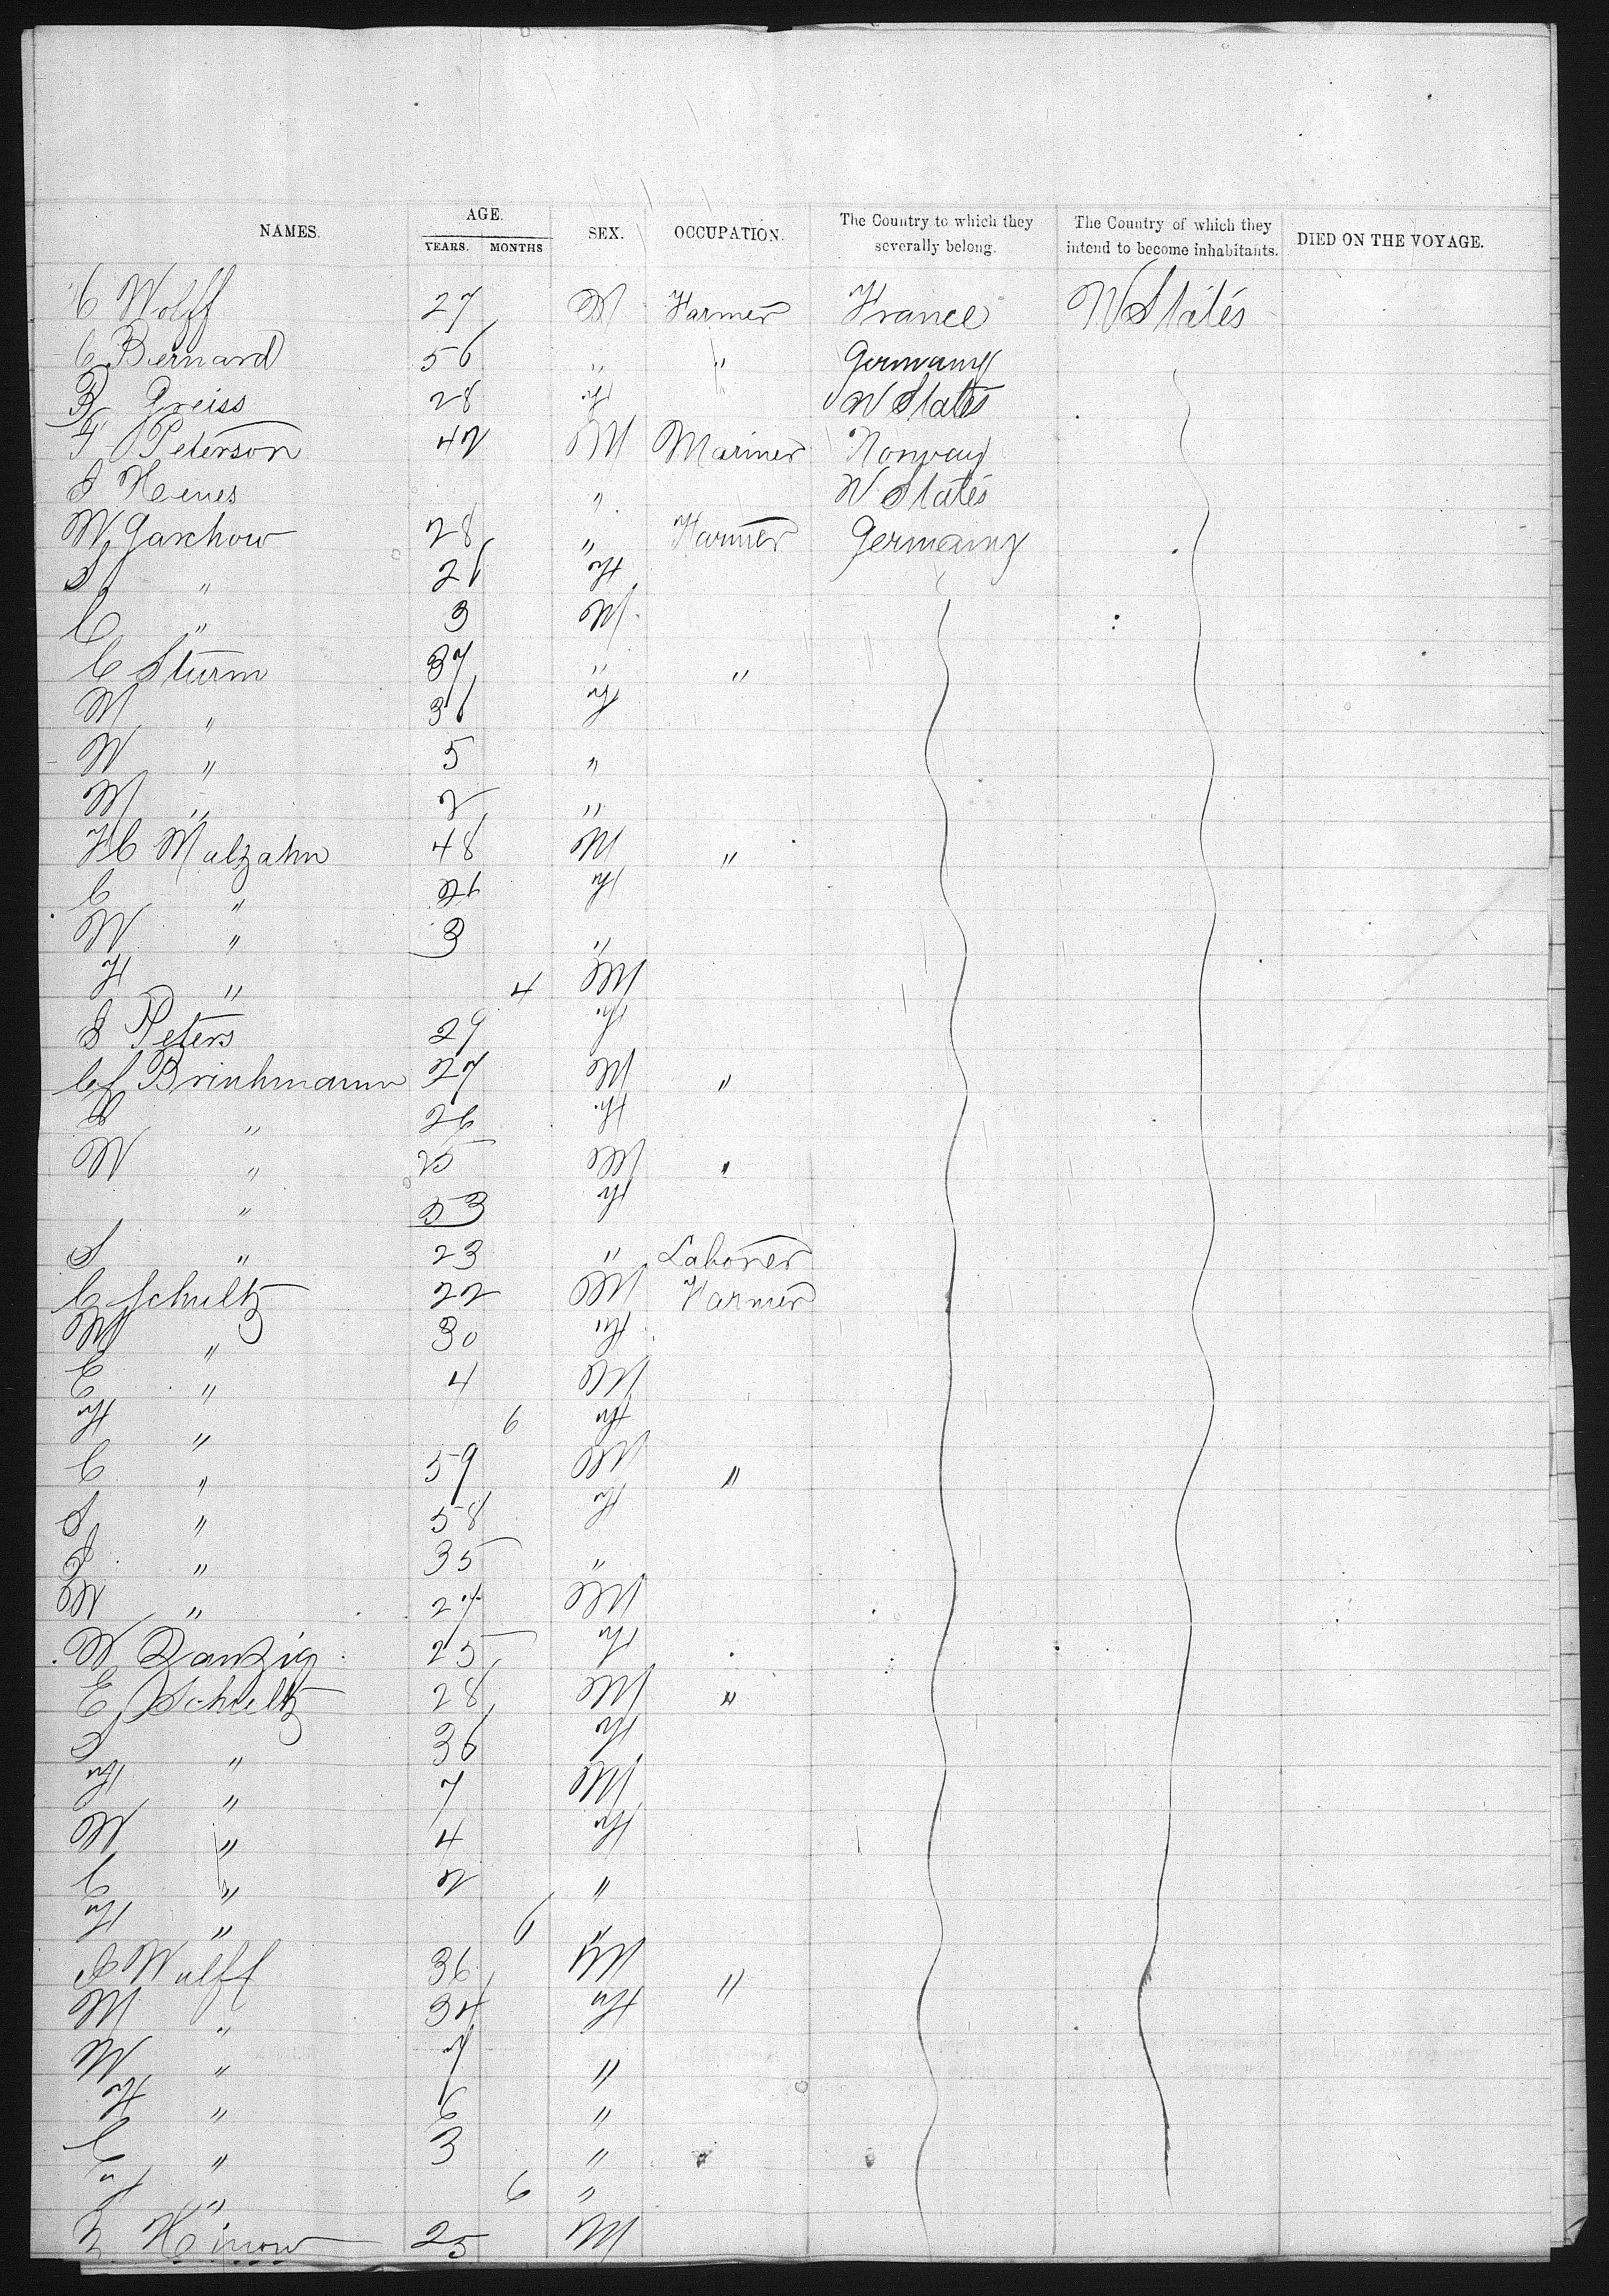 NAMES. AGE. YEARS. MONTHS SEX. OCCUPATION. The Country to which they severally belong. The Country of which they intend to become inhabitants. DIED ON THE VOYAGE.
C Wolff 27 M Farmer France U States
C Bernard 56 " " Germany
B Greiss 28 F U States
F Peterson 42 M Mariner Norway
J Henes " U States
W Garchow 28 " Farmer Germany
S " 26 F
C " 3 M
C Sturm 37 " "
M " 36 F
W " 5 "
M " 2 "
F C Malzahn 48 M "
C " F
W " 3 "
F " 4 M
S Peters 29 F
C f Brinkmann 27 M "
S " 26 F
W " 25 M "
" 53 F
S " 23 " Laborer
C Schultz 22 M Farmer
M " 30 F
C " 4 M
F " 6 F
C " 59 M "
S " 58 F
S " 35 "
W " 27 M
W Danzig 25 F
E Schultz 28 M "
S " 36 F
F " 7 M
W " 4 F
C " 2 "
F " 6 "
J Wulff 36 M "
M " 34 F
W " 7 "
F " 6 "
C " 3 "
" 6 "
Hinow 25 M